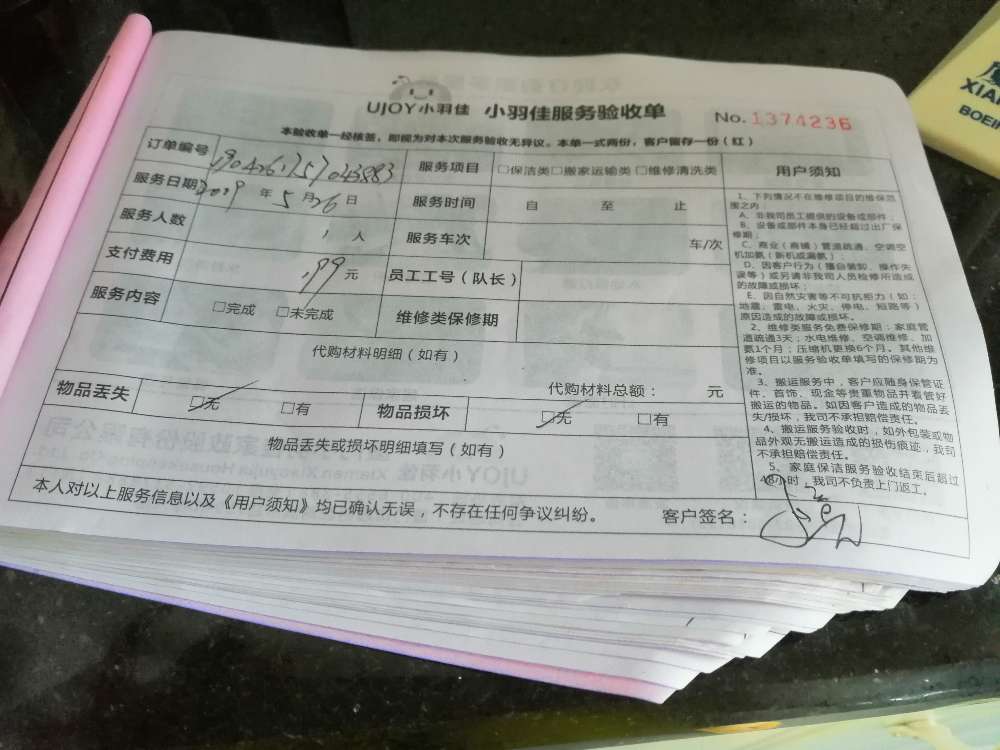 UJOY小羽佳 小羽佳服务验收单
No. 1374236
本验收单一经核签，即视为对本次服务验收无异议。本单一式两份，客户留存一份（红）
订单编号 服务项目 □保洁类□搬家运输类□维修清洗类
服务日期 年 5 月 26 日 服务时间 自 至 止
服务人数 1 人 服务车次 车/次
支付费用 199 元 员工工号（队长）
服务内容 □完成 □未完成 维修类保修期
代购材料明细（如有）
代购材料总额： 元
物品丢失 □无 □有 物品损坏 □无 □有
物品丢失或损坏明细填写（如有）
本人对以上服务信息以及《用户须知》均已确认无误，不存在任何争议纠纷。 客户签名：
用户须知
1、下列情况不在维修项目的维保范
围之内：
A、非我司员工提供的设备或部件；
B、设备或部件本身已经超过出厂保
修期；
C、商业（商铺）管道疏通、空调空
机加氨（新机或漏氨）；
D、因客户行为（擅自装卸、操作失
误等）或另请非我司人员检修所造成
的故障或损坏；
E、因自然灾害等不可抗拒力（如：
地震、雷电、火灾、停电、短路等）
原因造成的故障或损坏。
2、维修类服务免费保修期：家庭管
道疏通3天；水电维修、空调维修、加
氨1个月；压缩机更换6个月。其他维
修项目以服务验收单填写的保修期为
准。
3、搬运服务中，客户应随身保管证
件、首饰、现金等贵重物品并看管好
搬运的物品。如因客户造成的物品丢
失/损坏，我司不承担赔偿责任。
4、搬运服务验收时，如外包装或物
品外观无搬运造成的损伤痕迹，我司
不承担赔偿责任。
5、家庭保洁服务验收结束后超过
48小时，我司不负责上门返工。
XIA
BOEI